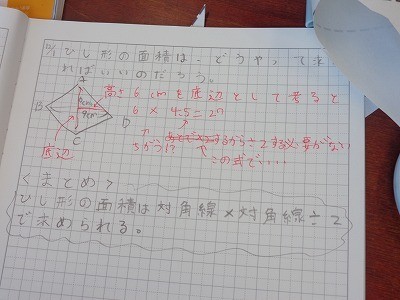 12/1 ひし形の面積は、どうやって求
ればいいのだろう。
A
高さ6cmを底辺として考ると
6cm
B
9cm
D
6×4.5=27
C
底辺
ちがう!?
するから÷2する必要がない
この式で・・・・
<まとめ>
ひし形の面積は対角線×対角線÷2
で求められる。